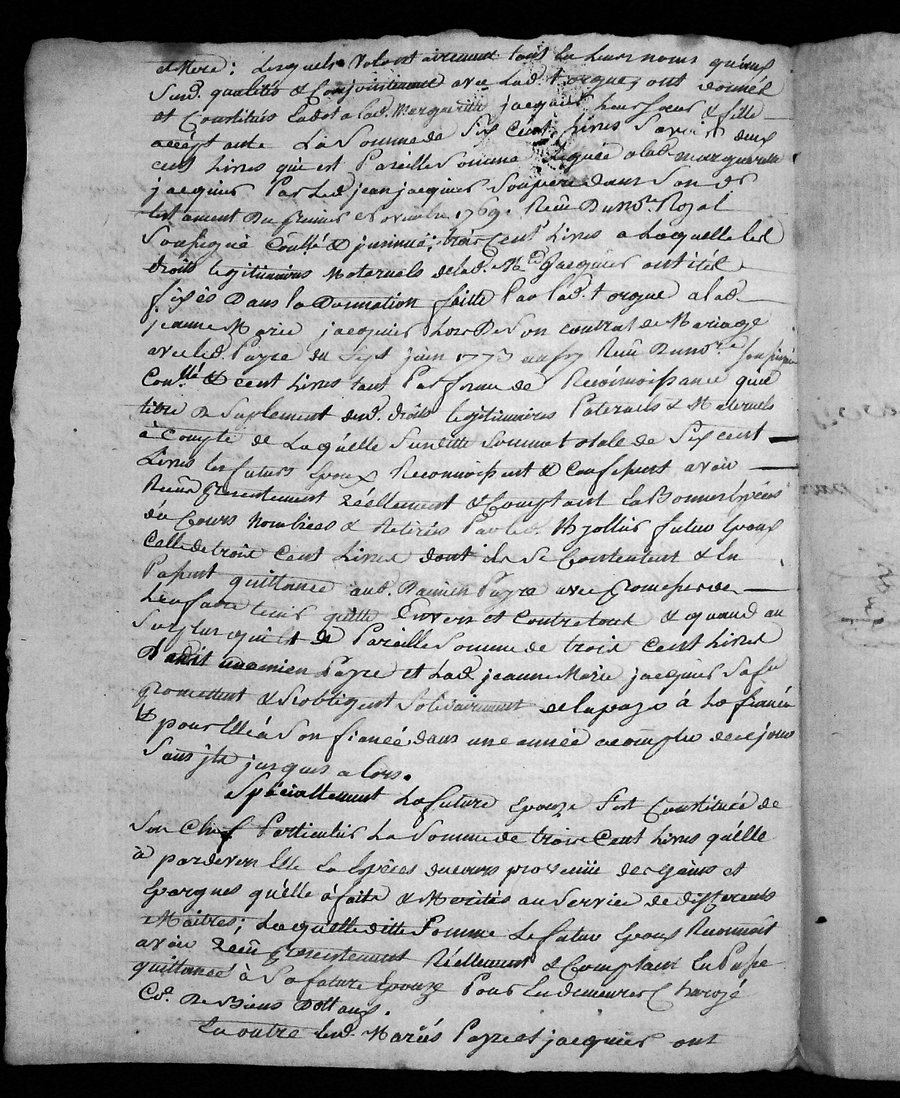 et Mere; lesquels volontairement tant en leurs noms qu'aux
Susd. qualités & Conjointement avec lad. torgue, ont donné
et Constitué En dot a lad. Marguerite jacquier leur soeur & fille
acceptante La Somme de Six Cent livres Savoir deux
cent livres qui est Pareille Somme leguée a lad. marguerite
jacquier Par led. jean jacquier Son pere dans Son dr
testament Du premier Novembre 1769. Reçu Du nore. Royal
Soussigné Contllé & jnsinué; trois Cent livres a Laquelle les
droits legitimaires Maternels de lad. Mte jacquier ont été
fixés Dans la Donnation faite Par lad. torgue a lad.
jeanne Marie jacquier Lors De Son contrat de Mariage
avec led. Payre du Sept juin 1773 aussy Reçu Du nore. Soussigné
Conllé & cent livres tant Par forme de Reconnoissance que
titre De Suplement desd. droits legitimaires Paternels & Maternels
à Compte de Laquelle Susditte Somme totale de Six cent
Livres les futurs Epoux Reconnoissent & Confessent avoir
Reçu Presentement Réellement & Comptant En Bonnes Especes
du Cours Nombrées & Retirées Par led. futur Epoux
Celle de trois Cent Livres dont ils Se Contentent & En
Passent quittance aud. Damien Payre avec Promesse de
L'en faire tenir quitte Envers et Contre tous & quand au
Surplus qui est de Pareille Somme de trois Cent Livres
Ledit Damien Payre et Lad. jeanne Marie jacquier Sa fe
promettent & S'obligent Solidairement de la payer à La fiancée
& pour Elle à Son fiancé, dans une année a compter de ce jour
Sans jts jusques a lors.
Spéciallement La future Epouze S'est Constituée de
Son Chef Particulier La Somme de trois Cent Livres qu'elle
à pardevers Elle En Espéces du cours provenüe des Gains et
Epargnes qu'elle à faits & Merités au Service de differents
Maitres; Laquelle ditte Somme Le futur Epoux Reconnoit
avoir Reçu Presentement Réellement & Comptant En Passe
quittance à Sa future Epouze Pour En demeurer Chargé
Co[mm]e De Biens Dottaux.
En outre lesd. Mariés Payre et jacquier ont